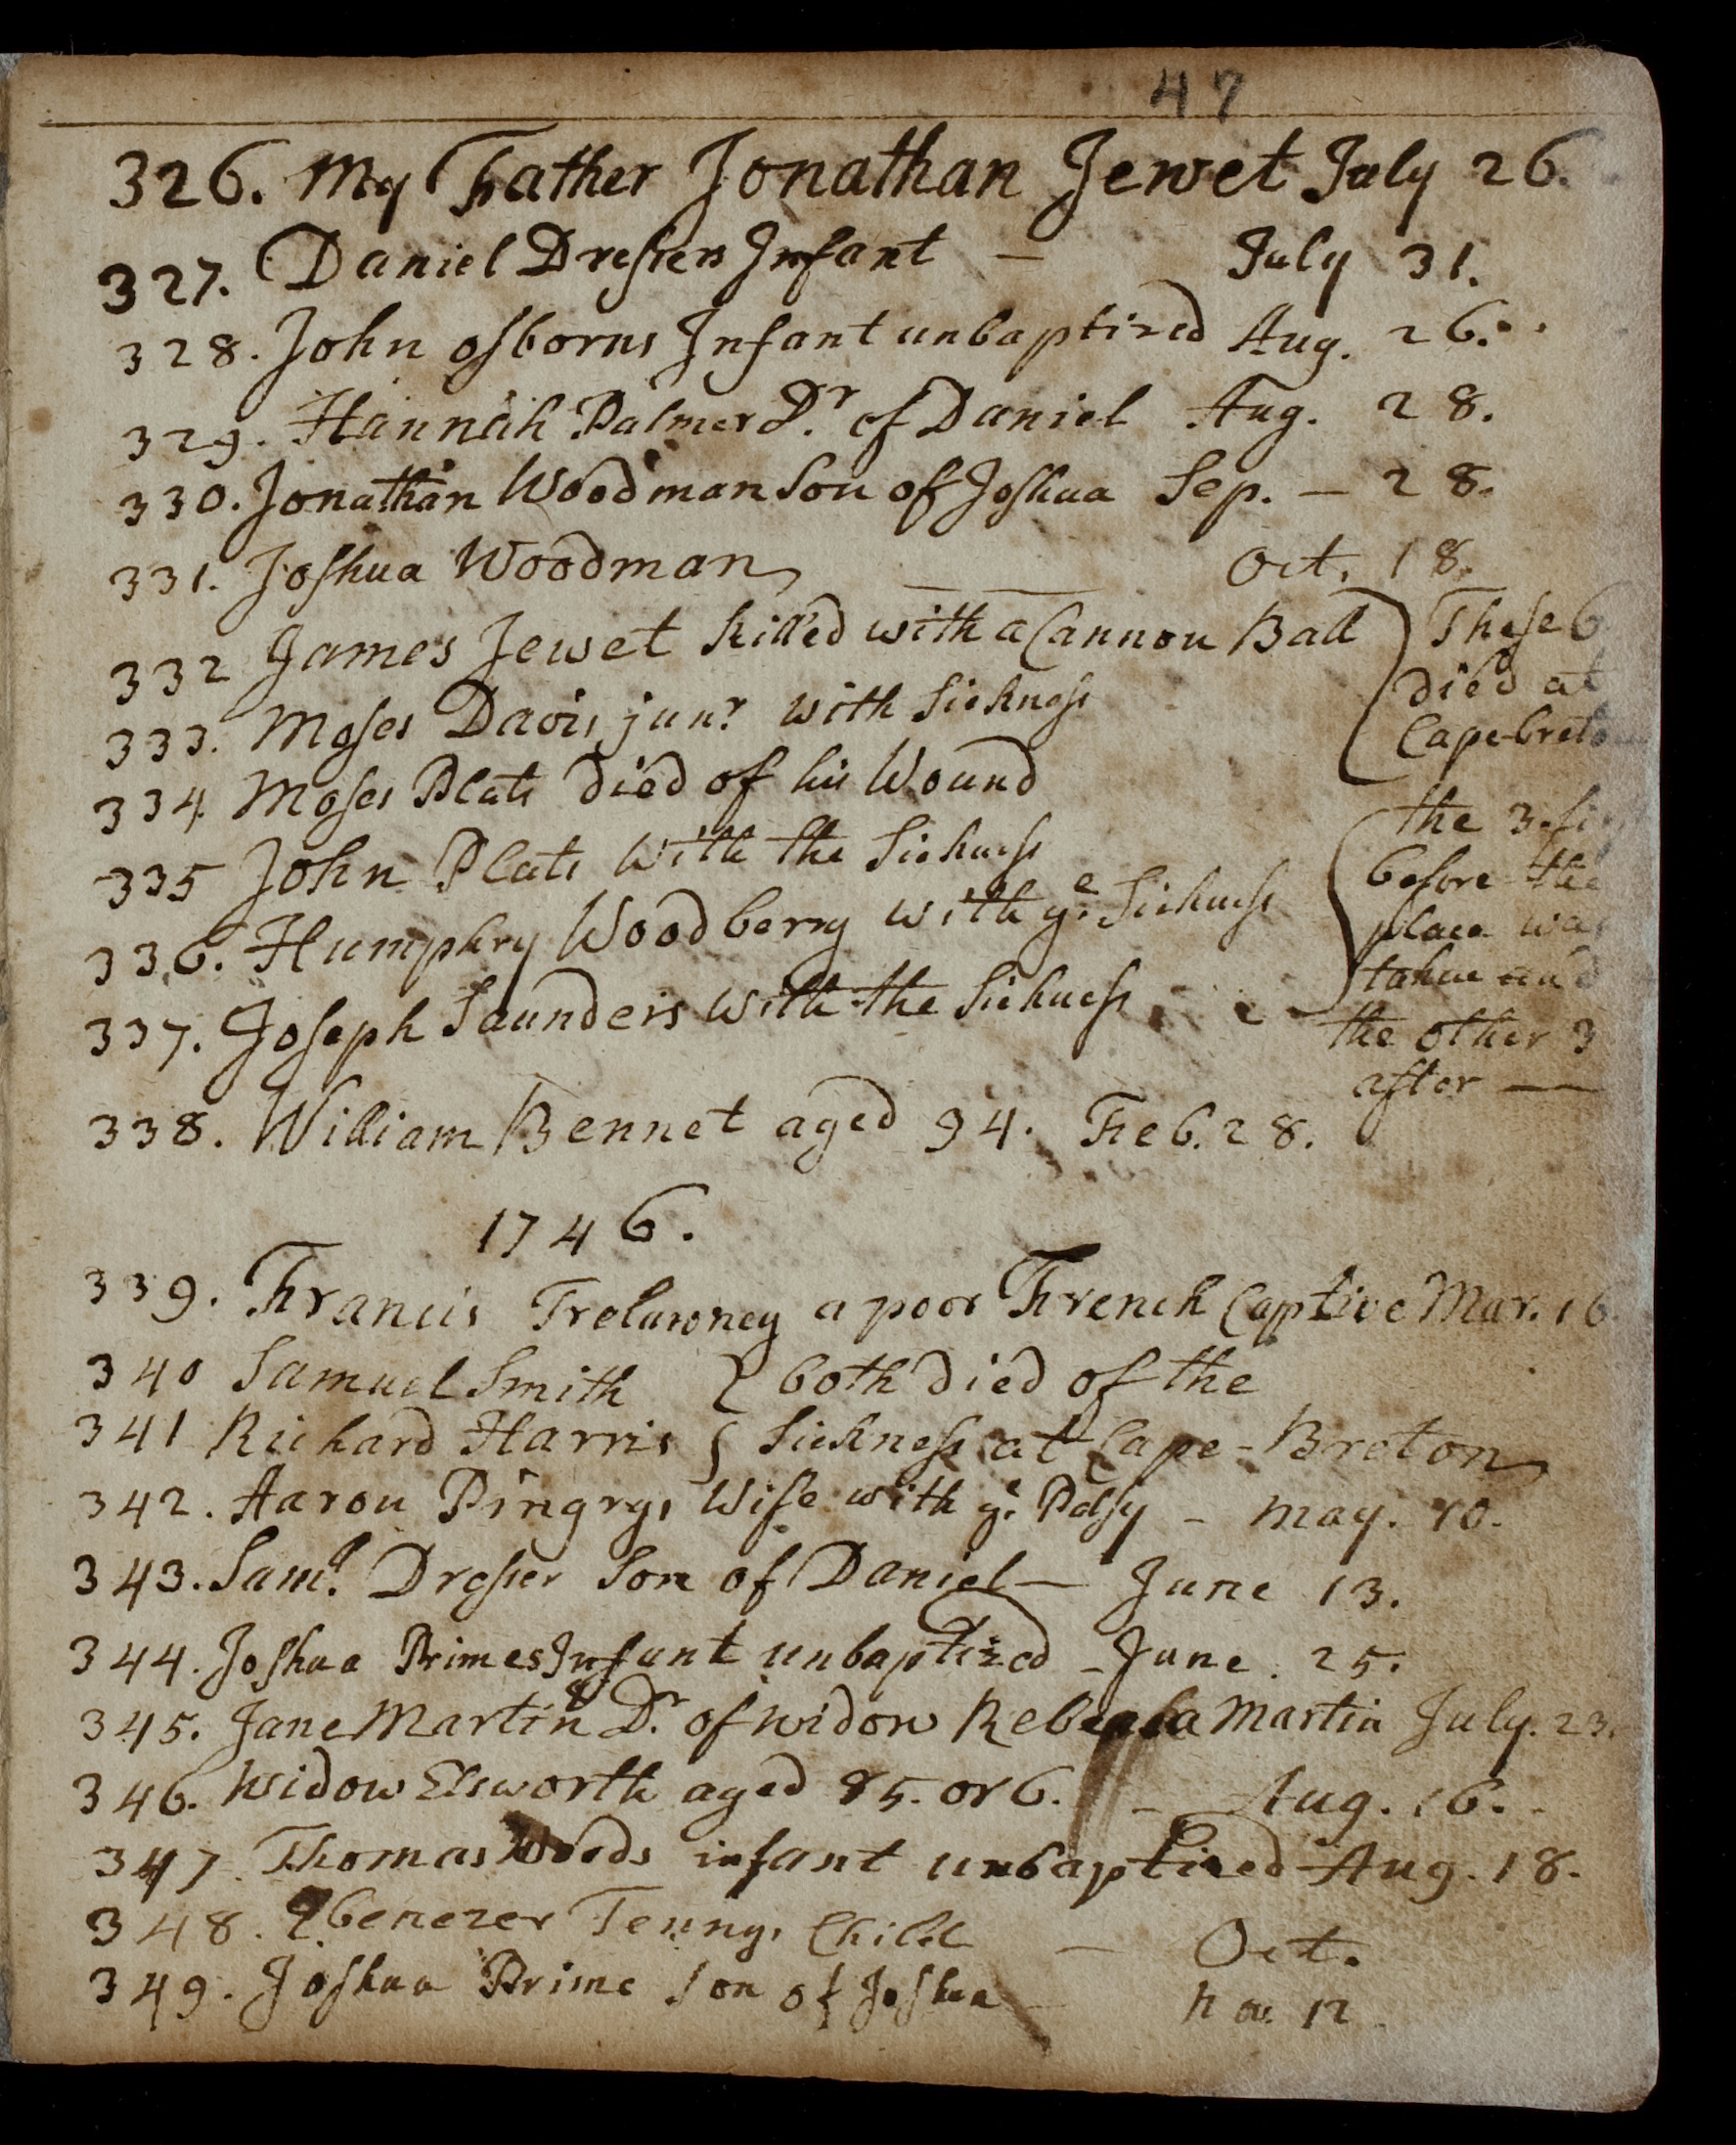 47
326. My Father Jonathan Jewet July 26.
327. Daniel Dreſsers Infant — July 31.
328. John oſborns Infant unbaptized Aug. 26.
329. Hannah Palmer Dr. of Daniel Aug. 28.
330. Jonathan Woodman Son of Joſhua Sep. — 28.
331. Joſhua Woodman — — Oct. 18.
332 James Jewet killed with a Cannon Ball
333. Moſes Davis junr. with Sickneſs
334. Moſes Plats died of his Wound
335 John Plats with the Sickneſs
336. Humphry Woodberry with ye. Sickneſs
337. Joſeph Saunders with the Sickneſs
Theſe 6
died at
Cape-breto
the 3 fi
before the
place was
taken and
the other 3
after —
338. William Bennet aged 94. Feb. 28.
1746.
339. Francis Trelawney a poor French Captive Mar. 16
340 Samuel Smith } both died of the
341 Richard Harris } Sickneſs at Cape-Breton
342. Aaron Pingrys Wife with ye. Palſy — May. 10.
343. Saml. Dreſser Son of Daniel — June 13.
344. Joſhua Primes Infant unbaptized — June. 25.
345. Jane Martin Dr. of widow Rebecca Martin July. 23.
346. Widow Elsworth aged 85. or 6. — Aug. 16.
347 Thomas Woods infant unbaptized Aug. 18.
348. Ebenezer Tennys Child — Oct.
349. Joſhua Prime Son of Joſhua — Nov. 12